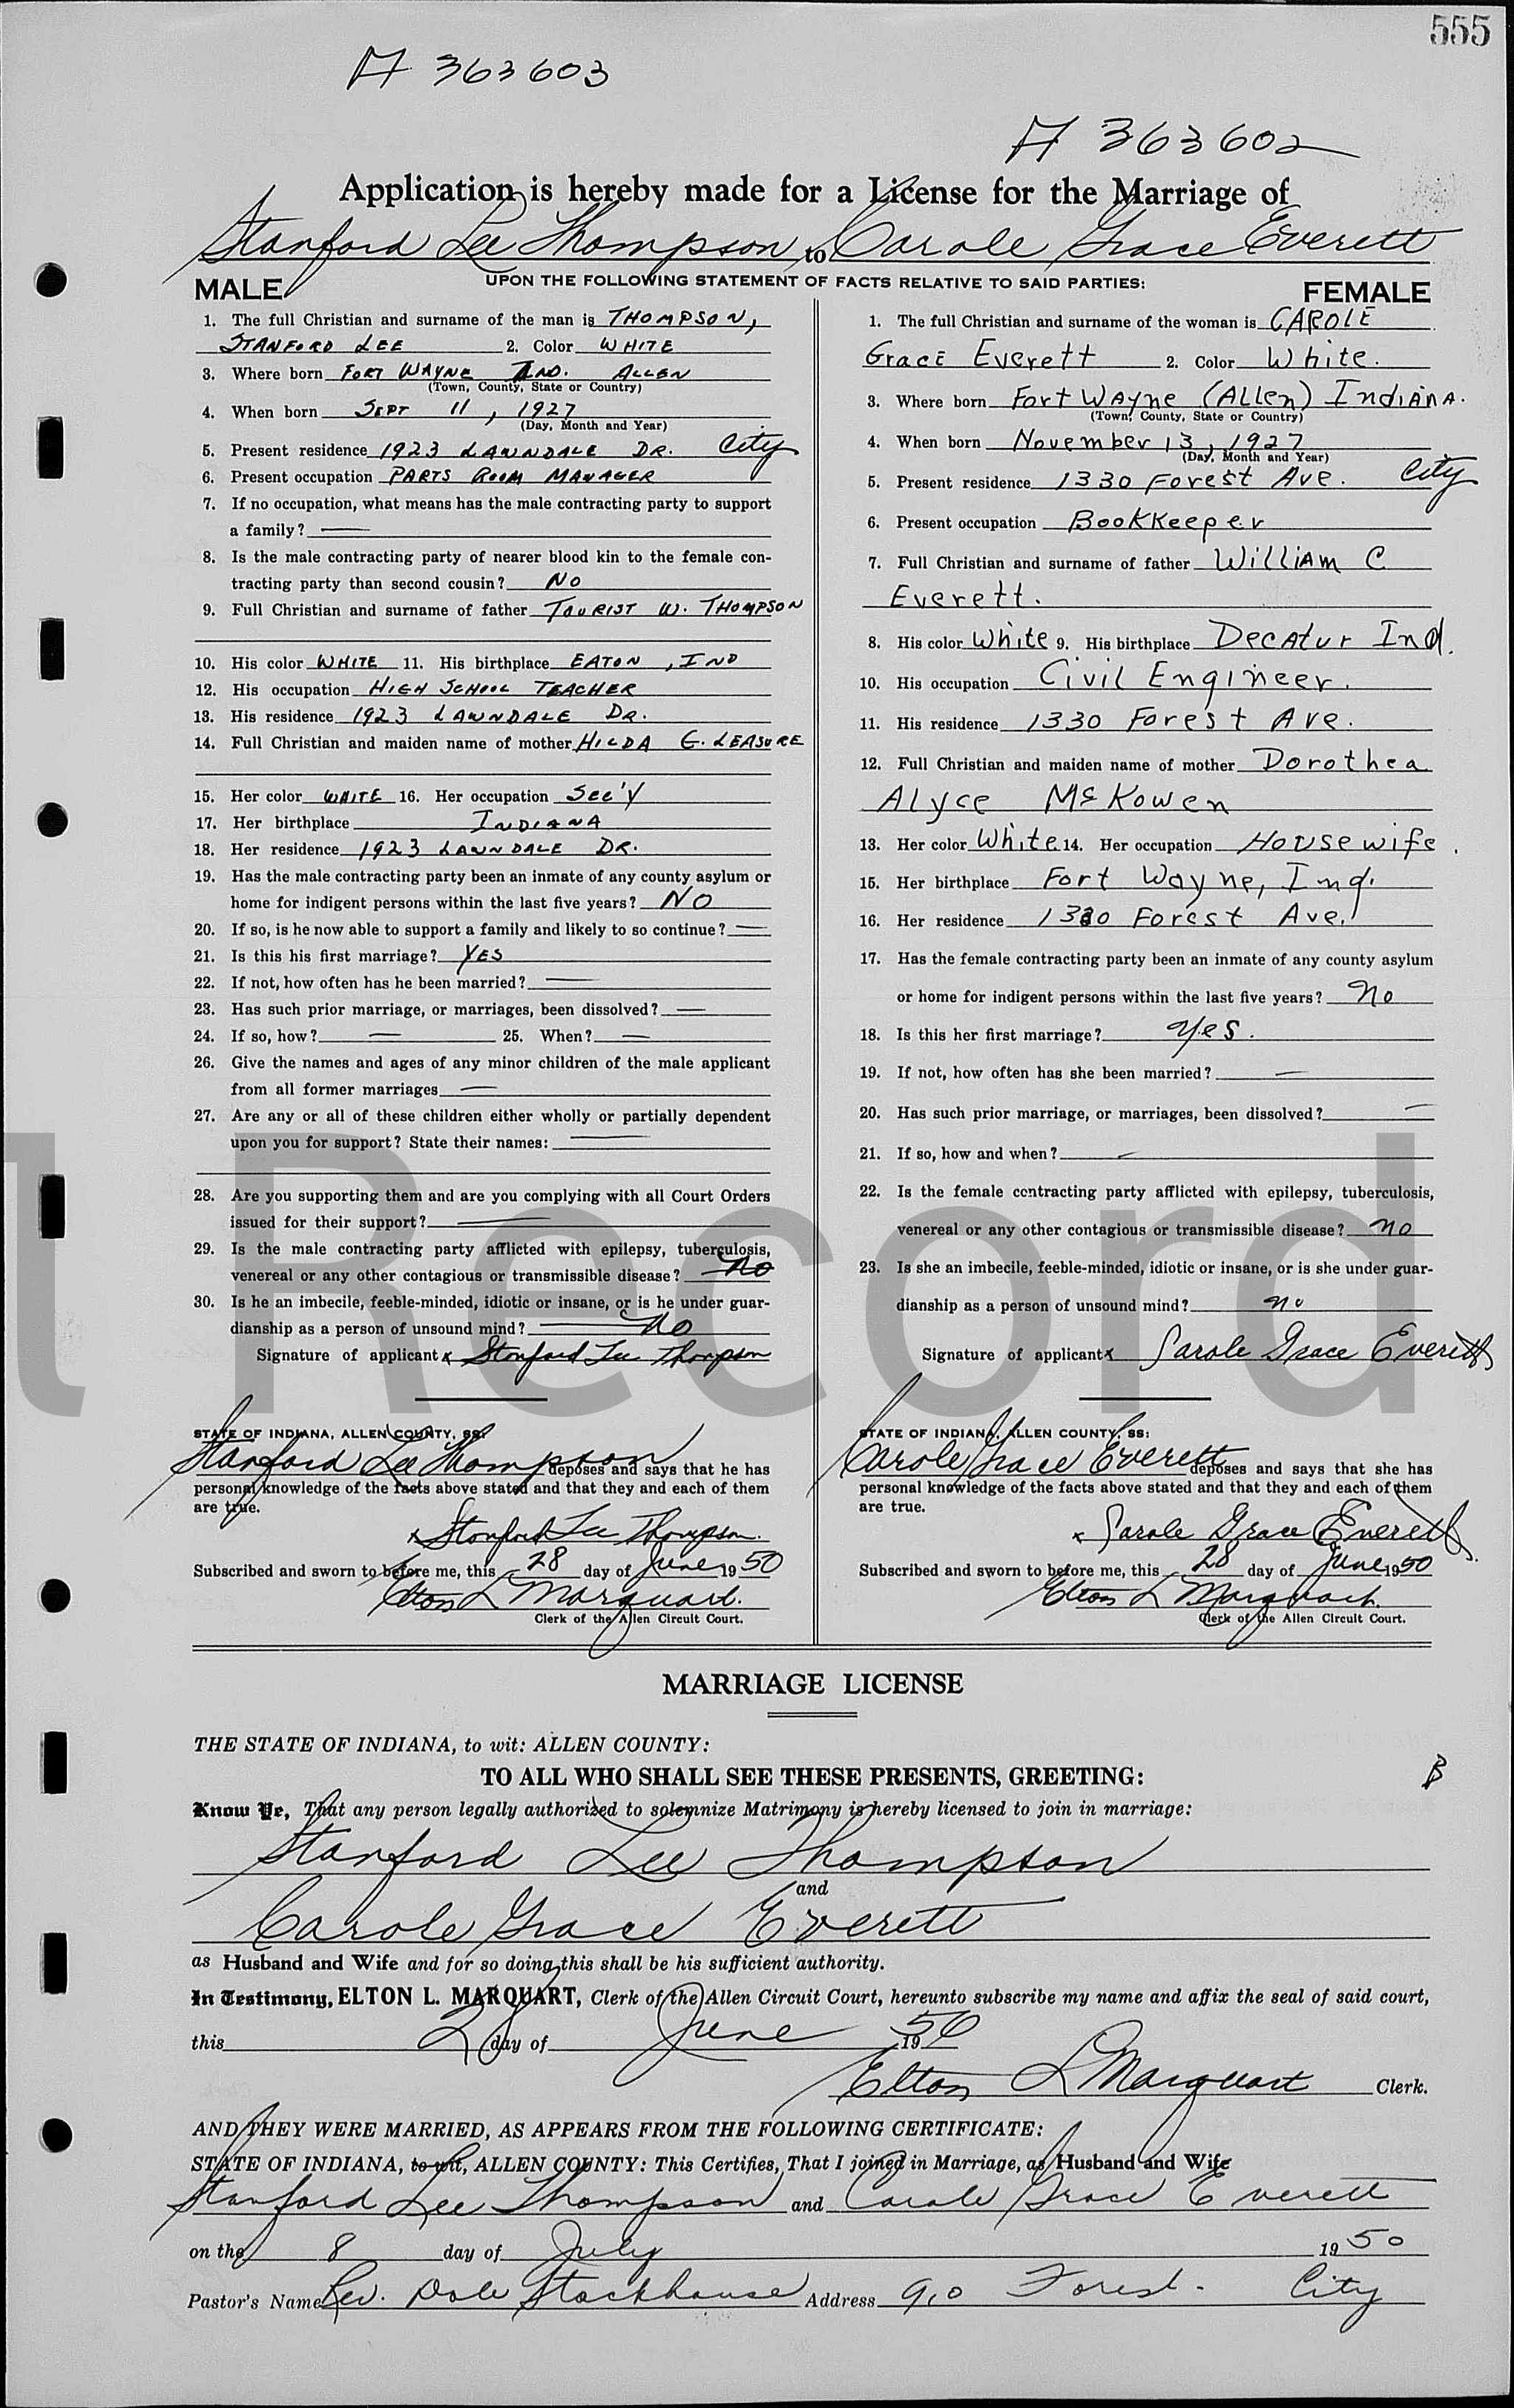 555
A 363603
A 363602
Application is hereby made for a License for the Marriage of
Stanford Lee Thompson to Carole Grace Everett
UPON THE FOLLOWING STATEMENT OF FACTS RELATIVE TO SAID PARTIES:
MALE
1. The full Christian and surname of the man is THOMPSON,
STANFORD LEE 2. Color WHITE
3. Where born FORT WAYNE IND. ALLEN
(Town, County, State or Country)
4. When born SEPT 11, 1927
(Day, Month and Year)
5. Present residence 1923 LAWNDALE DR. City
6. Present occupation PARTS ROOM MANAGER
7. If no occupation, what means has the male contracting party to support
a family? —
8. Is the male contracting party of nearer blood kin to the female con-
tracting party than second cousin? NO
9. Full Christian and surname of father TOURIST W. THOMPSON
10. His color WHITE 11. His birthplace EATON, IND
12. His occupation HIGH SCHOOL TEACHER
13. His residence 1923 LAWNDALE DR.
14. Full Christian and maiden name of mother HILDA G. LEASURE
15. Her color WHITE 16. Her occupation SEC'Y
17. Her birthplace INDIANA
18. Her residence 1923 LAWNDALE DR.
19. Has the male contracting party been an inmate of any county asylum or
home for indigent persons within the last five years? NO
20. If so, is he now able to support a family and likely to so continue? —
21. Is this his first marriage? YES
22. If not, how often has he been married? —
23. Has such prior marriage, or marriages, been dissolved? —
24. If so, how? — 25. When? —
26. Give the names and ages of any minor children of the male applicant
from all former marriages —
27. Are any or all of these children either wholly or partially dependent
upon you for support? State their names: —
28. Are you supporting them and are you complying with all Court Orders
issued for their support? —
29. Is the male contracting party afflicted with epilepsy, tuberculosis,
venereal or any other contagious or transmissible disease? No
30. Is he an imbecile, feeble-minded, idiotic or insane, or is he under guar-
dianship as a person of unsound mind? No
Signature of applicant x Stanford Lee Thompson
STATE OF INDIANA, ALLEN COUNTY, SS:
Stanford Lee Thompson deposes and says that he has
personal knowledge of the facts above stated and that they and each of them
are true.
x Stanford Lee Thompson.
Subscribed and sworn to before me, this 28 day of June 1950
Elton L Marquart.
Clerk of the Allen Circuit Court.
FEMALE
1. The full Christian and surname of the woman is CAROLE
Grace Everett 2. Color White.
3. Where born Fort Wayne (Allen) Indiana.
(Town, County, State or Country)
4. When born November 13, 1927
(Day, Month and Year)
5. Present residence 1330 Forest Ave. City
6. Present occupation Bookkeeper
7. Full Christian and surname of father William C
Everett.
8. His color White 9. His birthplace Decatur Ind.
10. His occupation Civil Engineer.
11. His residence 1330 Forest Ave.
12. Full Christian and maiden name of mother Dorothea
Alyce McKowen
13. Her color White 14. Her occupation Housewife.
15. Her birthplace Fort Wayne, Ind.
16. Her residence 1330 Forest Ave.
17. Has the female contracting party been an inmate of any county asylum
or home for indigent persons within the last five years? No
18. Is this her first marriage? Yes.
19. If not, how often has she been married? —
20. Has such prior marriage, or marriages, been dissolved? —
21. If so, how and when? —
22. Is the female contracting party afflicted with epilepsy, tuberculosis,
venereal or any other contagious or transmissible disease? no
23. Is she an imbecile, feeble-minded, idiotic or insane, or is she under guar-
dianship as a person of unsound mind? no
Signature of applicant x Carole Grace Everett
STATE OF INDIANA, ALLEN COUNTY, SS:
Carole Grace Everett deposes and says that she has
personal knowledge of the facts above stated and that they and each of them
are true.
x Carole Grace Everett
Subscribed and sworn to before me, this 28 day of June 1950
Elton L Marquart.
Clerk of the Allen Circuit Court.
l Record
MARRIAGE LICENSE
THE STATE OF INDIANA, to wit: ALLEN COUNTY:
TO ALL WHO SHALL SEE THESE PRESENTS, GREETING:
B
Know Ye, That any person legally authorized to solemnize Matrimony is hereby licensed to join in marriage:
Stanford Lee Thompson
and
Carole Grace Everett
as Husband and Wife and for so doing this shall be his sufficient authority.
In Testimony, ELTON L. MARQUART, Clerk of the Allen Circuit Court, hereunto subscribe my name and affix the seal of said court,
this 28 day of June 1950
Elton L Marquart Clerk.
AND THEY WERE MARRIED, AS APPEARS FROM THE FOLLOWING CERTIFICATE:
STATE OF INDIANA, to wit, ALLEN COUNTY: This Certifies, That I joined in Marriage, as Husband and Wife
Stanford Lee Thompson and Carole Grace Everett
on the 8 day of July 1950
Pastor's Name Rev. Dale Stackhouse Address 910 Forest. City